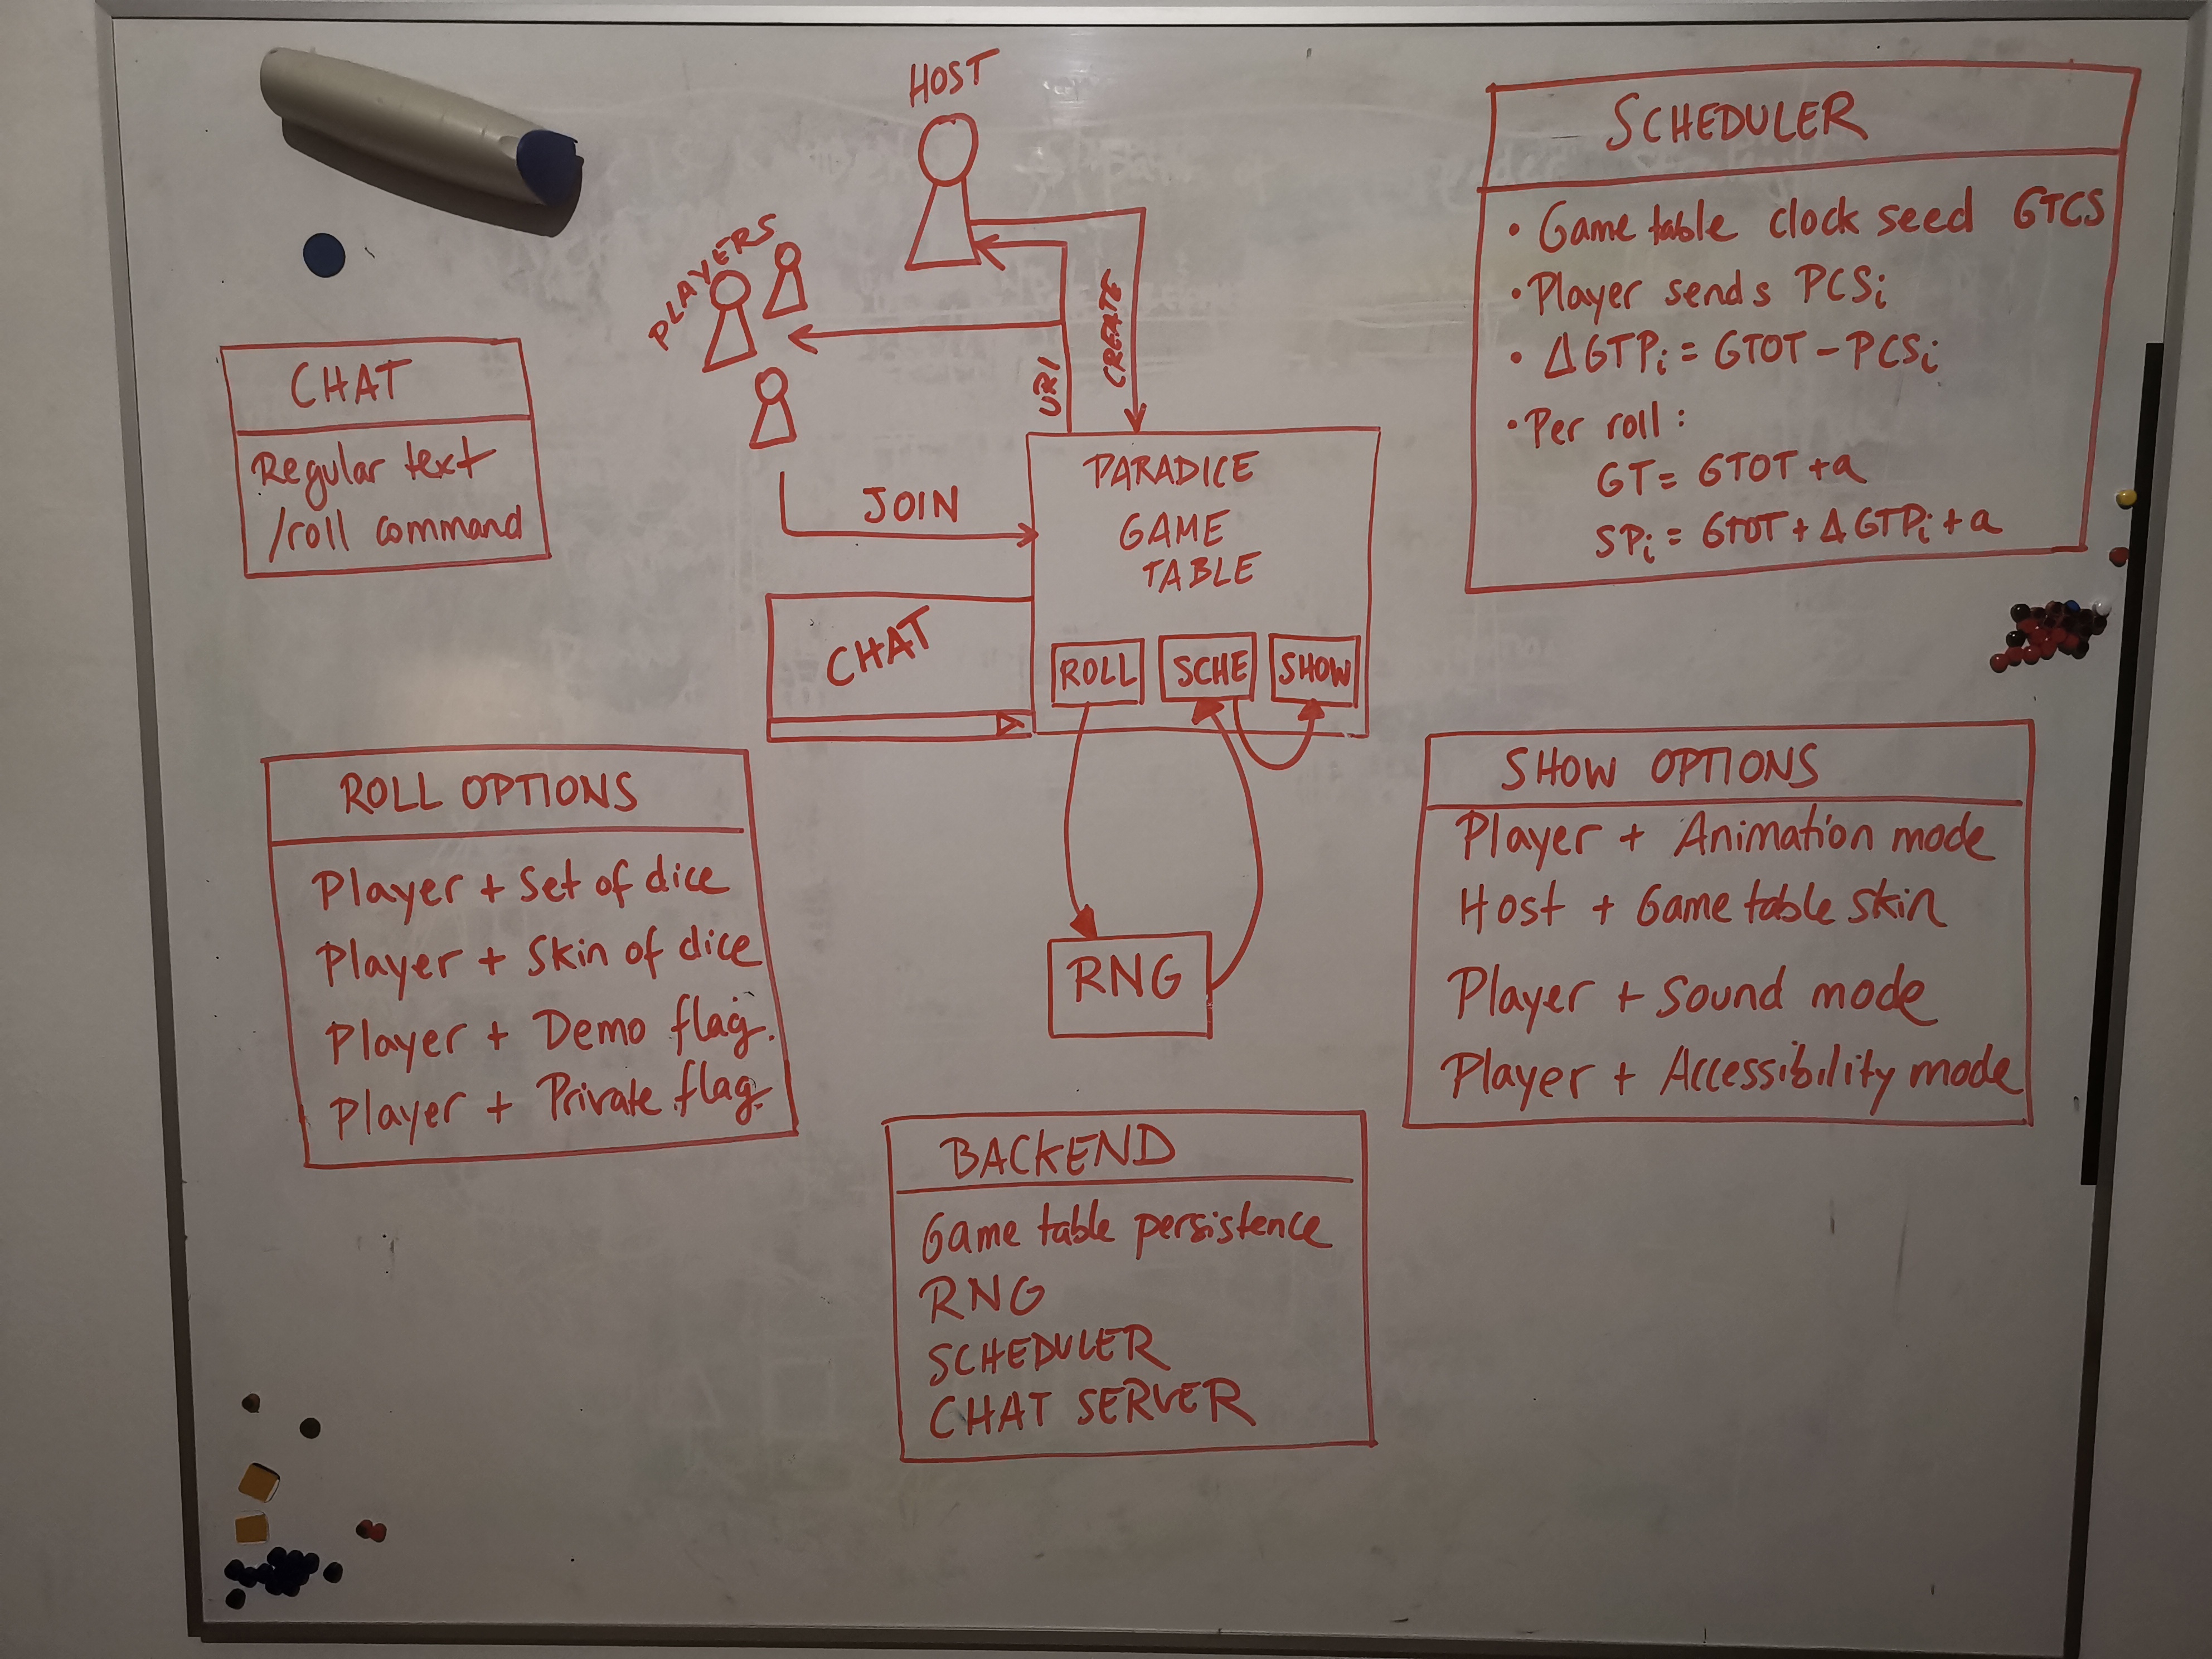 HOST
PLAYERS
CREATE
URI
JOIN
PARADICE
GAME
TABLE
ROLL
SCHE
SHOW
CHAT
RNG
CHAT
Regular text
/roll command
SCHEDULER
• Game table clock seed GTCS
• Player sends PCSi
• ΔGTPi = GTOT - PCSi
• Per roll:
GT = GTOT + a
SPi = GTOT + ΔGTPi + a
ROLL OPTIONS
Player + Set of dice
Player + Skin of dice
Player + Demo flag.
Player + Private flag.
SHOW OPTIONS
Player + Animation mode
Host + Game table skin
Player + Sound mode
Player + Accessibility mode
BACKEND
Game table persistence
RNG
SCHEDULER
CHAT SERVER